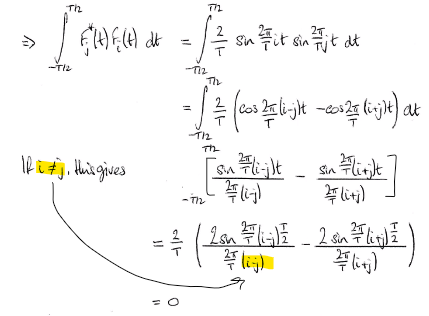 ⇒ ∫_{-T/2}^{T/2} f_j^*(t) f_i(t) dt = ∫_{-T/2}^{T/2} 2/T sin 2π/T it sin 2π/T jt dt
= ∫_{-T/2}^{T/2} 2/T (cos 2π/T (i-j)t - cos 2π/T (i+j)t) dt
If i ≠ j, this gives _{-T/2}^{T/2} [ sin 2π/T (i-j)t / 2π/T (i-j) - sin 2π/T (i+j)t / 2π/T (i+j) ]
= 2/T ( 2 sin 2π/T (i-j) T/2 / 2π/T (i-j) - 2 sin 2π/T (i+j) T/2 / 2π/T (i+j) )
= 0